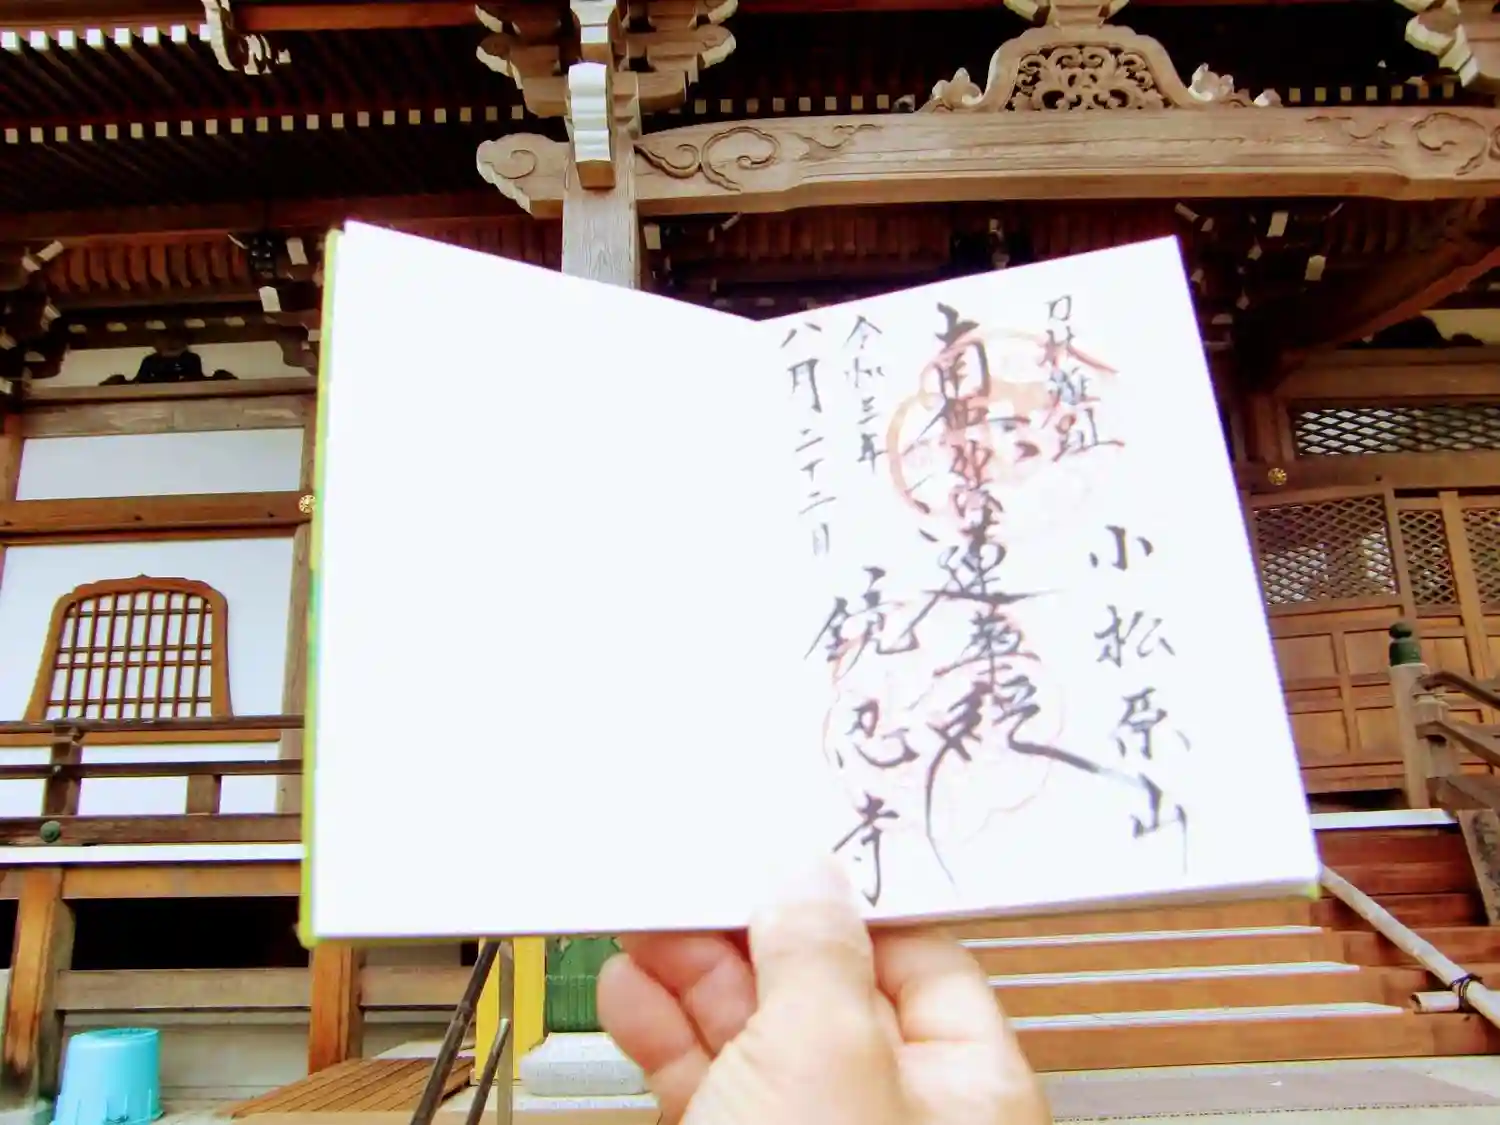 小松原山
刀杖難趾
南無妙法蓮華経
令和三年
八月二十二日
鏡忍寺